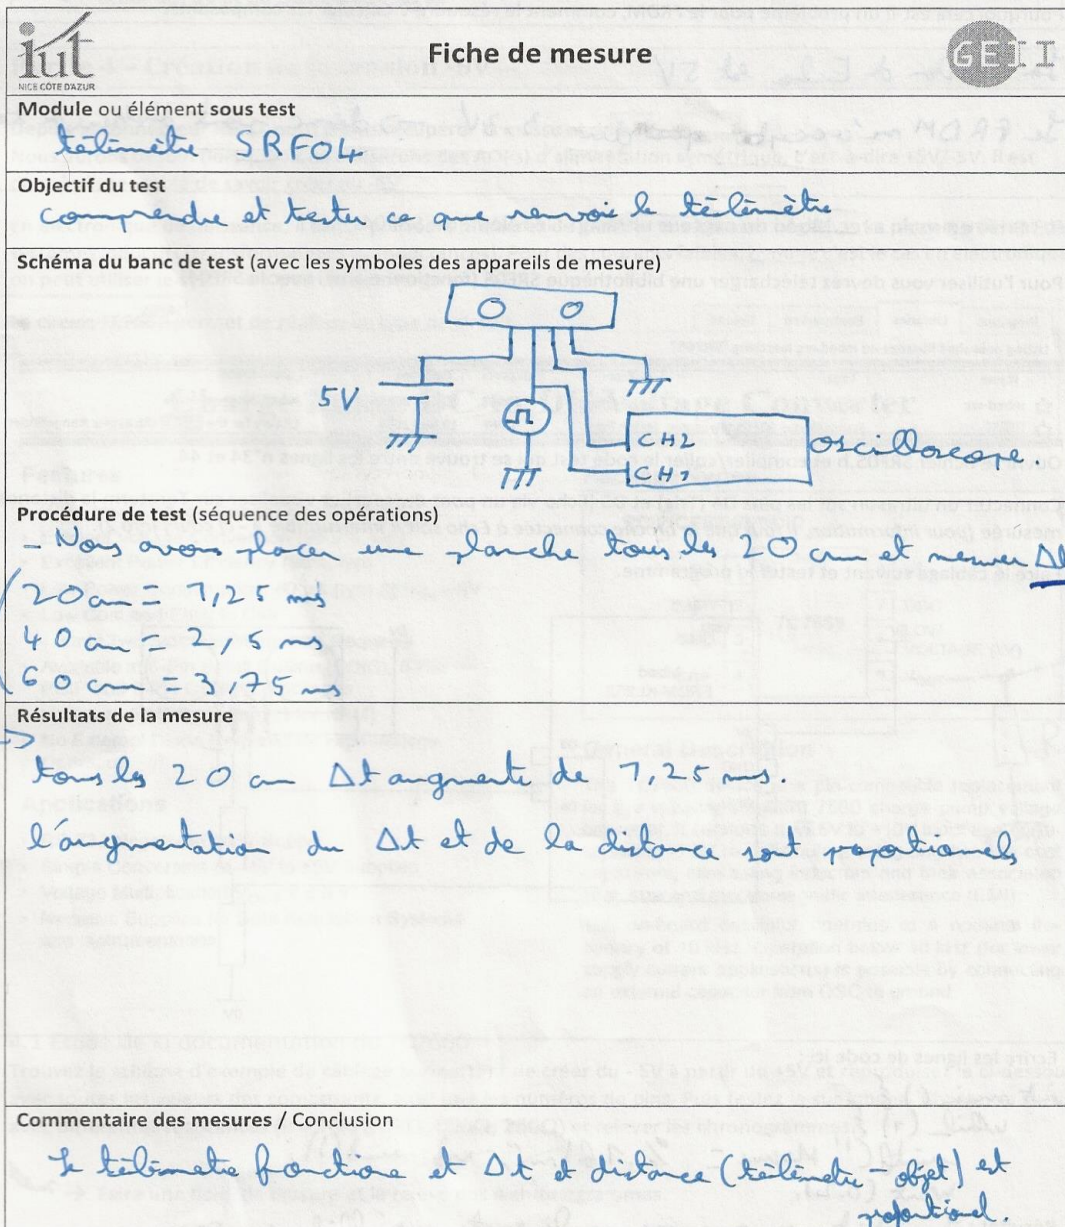 iut
NICE CÔTE D'AZUR
Fiche de mesure
GEII
Module ou élément sous test
télémètre SRF04
Objectif du test
comprendre et tester ce que renvoie le télémètre
Schéma du banc de test (avec les symboles des appareils de mesure)
5V
CH2
CH1
oscilloscope
Procédure de test (séquence des opérations)
- Nous avons placer une planche tous les 20 cm et mesurer Δt
20 cm = 1,25 ms
40 cm = 2,5 ms
60 cm = 3,75 ms
Résultats de la mesure
tous les 20 cm Δt augmente de 1,25 ms.
l'augmentation du Δt et de la distance sont proportionels
Commentaire des mesures / Conclusion
le télémetre fonctione et Δt et distance (télémetre - objet) est
proportionel.